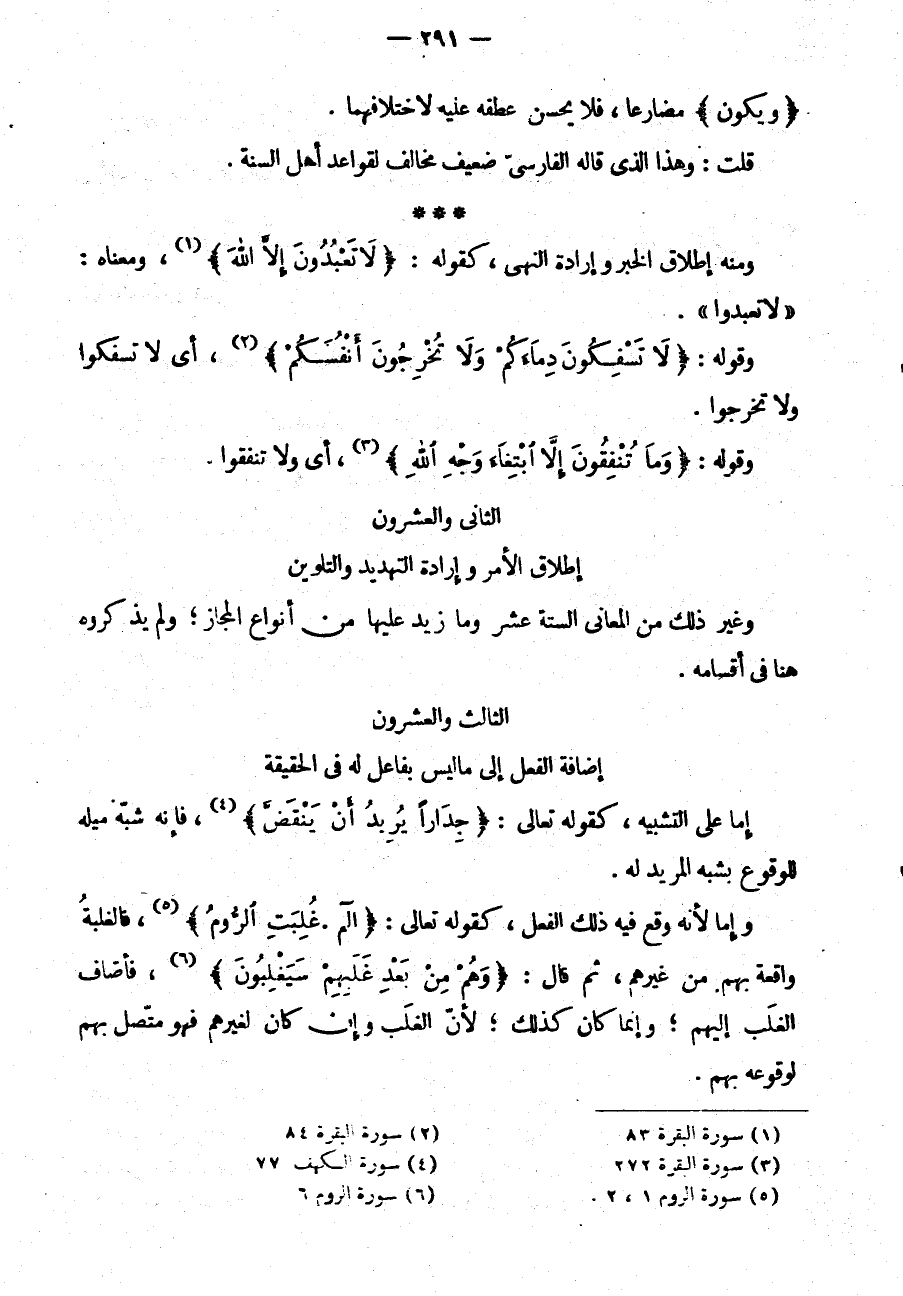 — ٢٩١ —
﴿ ويكون ﴾ مضارعا ، فلا يحسن عطفه عليه لاختلافهما .
قلت : وهذا الذى قاله الفارسىّ ضعيف مخالف لقواعد أهل السنة .
* * *
ومنه إطلاق الخبر وإرادة النهى ، كقوله : ﴿ لَا تَعْبُدُونَ إِلاَّ اللهَ ﴾ (١) ، ومعناه :
« لا تعبدوا » .
وقوله : ﴿ لَا تَسْفِكُونَ دِمَاءَكُمْ وَلَا تُخْرِجُونَ أَنْفُسَكُمْ ﴾ (٢) ، أى لا تسفكوا
ولا تخرجوا .
وقوله : ﴿ وَمَا تُنْفِقُونَ إِلَّا ٱبْتِغَاءَ وَجْهِ ٱللهِ ﴾ (٣) ، أى ولا تنفقوا .
الثانى والعشرون
إطلاق الأمر وإرادة التهديد والتلوين
وغير ذلك من المعانى الستة عشر وما زيد عليها من أنواع المجاز ؛ ولم يذكروه
هنا فى أقسامه .
الثالث والعشرون
إضافة الفعل إلى ماليس بفاعل له فى الحقيقة
إما على التشبيه ، كقوله تعالى : ﴿ جِدَاراً يُرِيدُ أَنْ يَنْقَضَّ ﴾ (٤) ، فإنه شبّه ميله
للوقوع بشبه المريد له .
وإما لأنه وقع فيه ذلك الفعل ، كقوله تعالى : ﴿ الٓم . غُلِبَتِ ٱلرُّومُ ﴾ (٥) ، فالغلبةُ
واقعة بهم من غيرهم ، ثم قال : ﴿ وَهُمْ مِنْ بَعْدِ غَلَبِهِمْ سَيَغْلِبُونَ ﴾ (٦) ، فأضاف
الغلَب إليهم ؛ وإنما كان كذلك ؛ لأنّ الغلَب وإن كان لغيرهم فهو متّصل بهم
لوقوعه بهم .
(١) سورة البقرة ٨٣ (٢) سورة البقرة ٨٤
(٣) سورة القرة ٢٧٢ (٤) سورة الكهف ٧٧
(٥) سورة الروم ١ ، ٢ . (٦) سورة الروم ٦